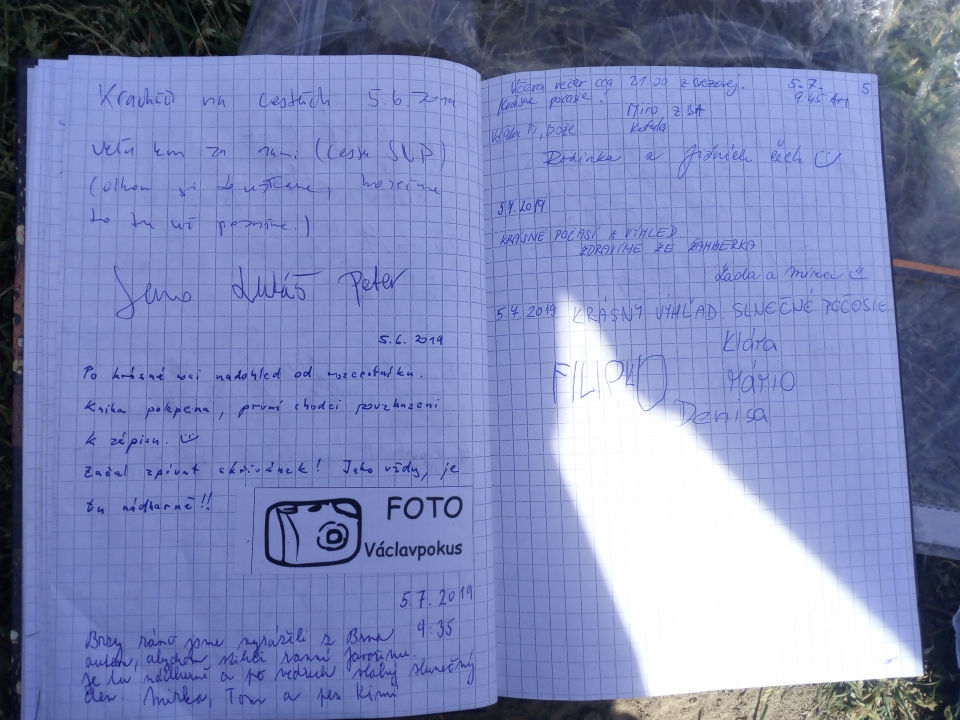 na cestách 5.6.2019
km za nami (Cesta SNP)
to tu už
Jano Lukáš Peter
5.6.2019
Po krásné noci nadohled od rozcestníku.
Kniha pokřtena, první chodci povzbuzeni
k zápisu.
Začal zpívat skřivánek! Jako vždy, je
tu nádherně!!
FOTO
Václavpokus
5.7.2019
9:35
Brzy ráno jsme vyrazili z Brna
autem, abychom stihli ranní Javořinu.
Je tu nádherně a po vedrech slabý slunečný
den. Mirka, Tom a pes Kimi
5
Včera večer cca 21.00 z Březovej. 5.7.
Krásne počasie. 9:45 AM
Miro z BA
Vďaka Ti, Bože
Rodinka z Jižních Čech
5.7.2019
KRÁSNÉ POČASÍ A VÝHLED
ZDRAVÍME ZE ŽAMBERKA
Lada a Mirca
5.7.2019 KRÁSNY VÝHĽAD. SLNEČNÉ POČASIE
Klára
FILIPKO MÁRIO
Denisa